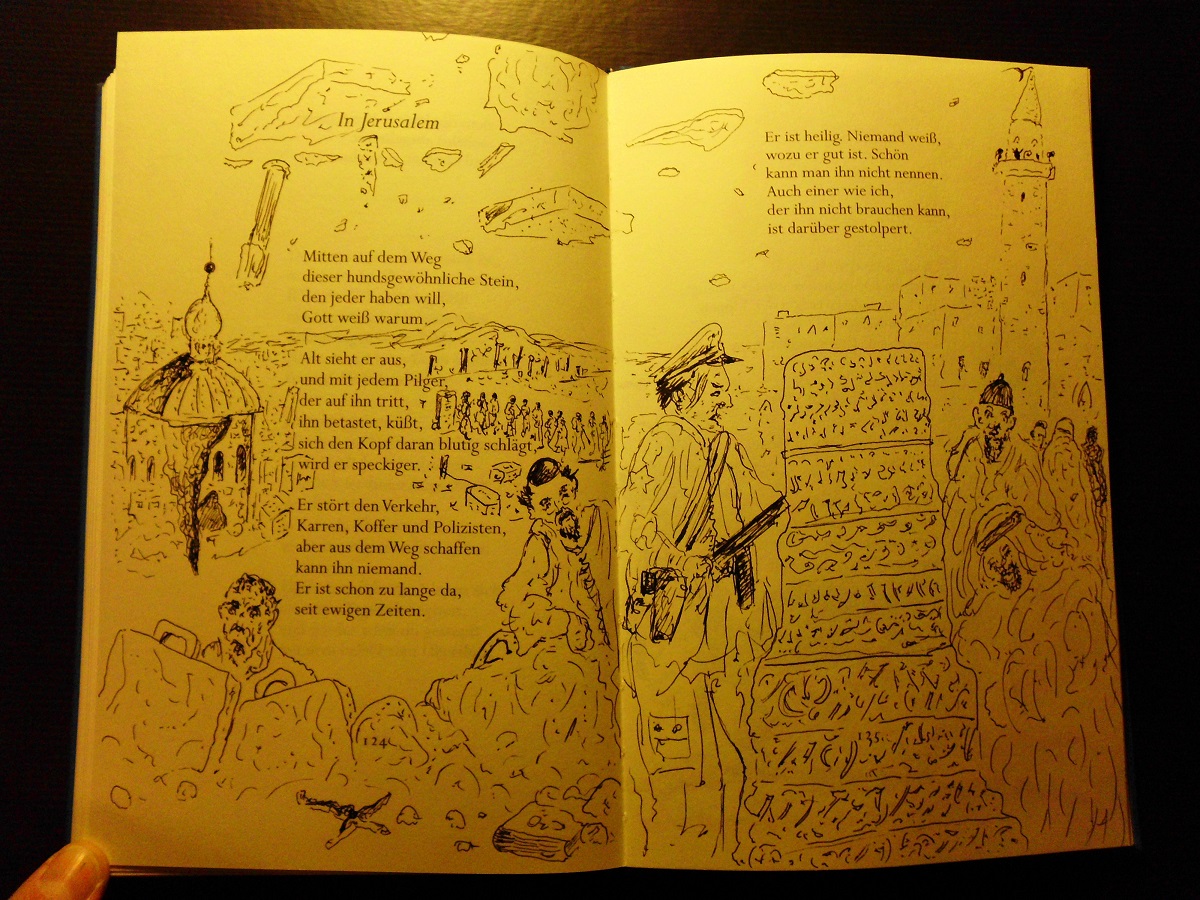 In Jerusalem
Mitten auf dem Weg
dieser hundsgewöhnliche Stein,
den jeder haben will,
Gott weiß warum.
Alt sieht er aus,
und mit jedem Pilger,
der auf ihn tritt,
ihn betastet, küßt,
sich den Kopf daran blutig schlägt,
wird er speckiger.
Er stört den Verkehr,
Karren, Koffer und Polizisten,
aber aus dem Weg schaffen
kann ihn niemand.
Er ist schon zu lange da,
seit ewigen Zeiten.
124
Er ist heilig. Niemand weiß,
wozu er gut ist. Schön
kann man ihn nicht nennen.
Auch einer wie ich,
der ihn nicht brauchen kann,
ist darüber gestolpert.